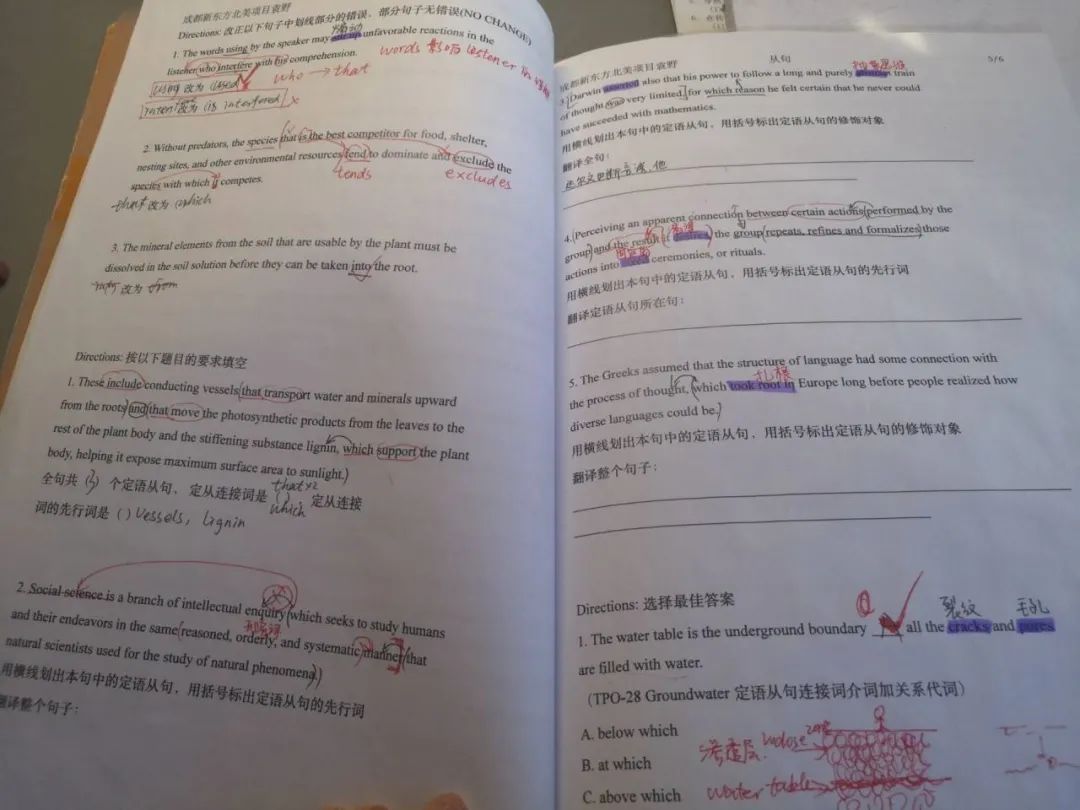 成都新东方北美项目袁野
Directions: 改正以下句子中划线部分的错误，部分句子无错误(NO CHANGE)
煽动
1. The words using by the speaker may stir up unfavorable reactions in the
listener who interfere with his comprehension.
words 影响 listener
who → that
using 改为 used
改为 is interfered ×
2. Without predators, the species that is the best competitor for food, shelter,
nesting sites, and other environmental resources tend to dominate and exclude the
tends excludes
species with which it competes.
that 改为 which
3. The mineral elements from the soil that are usable by the plant must be
dissolved in the soil solution before they can be taken into the root.
into 改为 from
Directions: 按以下题目的要求填空
1. These include conducting vessels that transport water and minerals upward
from the roots and that move the photosynthetic products from the leaves to the
rest of the plant body and the stiffening substance lignin, which support the plant
body, helping it expose maximum surface area to sunlight.
全句共 (3) 个定语从句，定从连接词是 ( )，定从连接
that×2
which
词的先行词是 ( ) Vessels, lignin
2. Social science is a branch of intellectual enquiry which seeks to study humans
and their endeavors in the same reasoned, orderly, and systematic manner that
natural scientists used for the study of natural phenomena.
用横线划出本句中的定语从句，用括号标出定语从句的先行词
翻译整个句子：
成都新东方北美项目袁野
从句
5/6
3. Darwin asserted also that his power to follow a long and purely abstract train
of thought was very limited, for which reason he felt certain that he never could
have succeeded with mathematics.
用横线划出本句中的定语从句，用括号标出定语从句的修饰对象
翻译全句：
达尔文, 他
4. Perceiving an apparent connection between certain actions performed by the
group and the result it desires, the group repeats, refines and formalizes those
actions into fixed ceremonies, or rituals.
用横线划出本句中的定语从句，用括号标出定语从句的先行词
翻译定语从句所在句：
5. The Greeks assumed that the structure of language had some connection with
扎根
the process of thought, which took root in Europe long before people realized how
diverse languages could be.
用横线划出本句中的定语从句，用括号标出定语从句的修饰对象
翻译整个句子：
Directions: 选择最佳答案
裂纹 毛孔
1. The water table is the underground boundary all the cracks and pores
are filled with water.
(TPO-28 Groundwater 定语从句连接词介词加关系代词)
A. below which
B. at which
C. above which
渗透层 vadose zone
water table